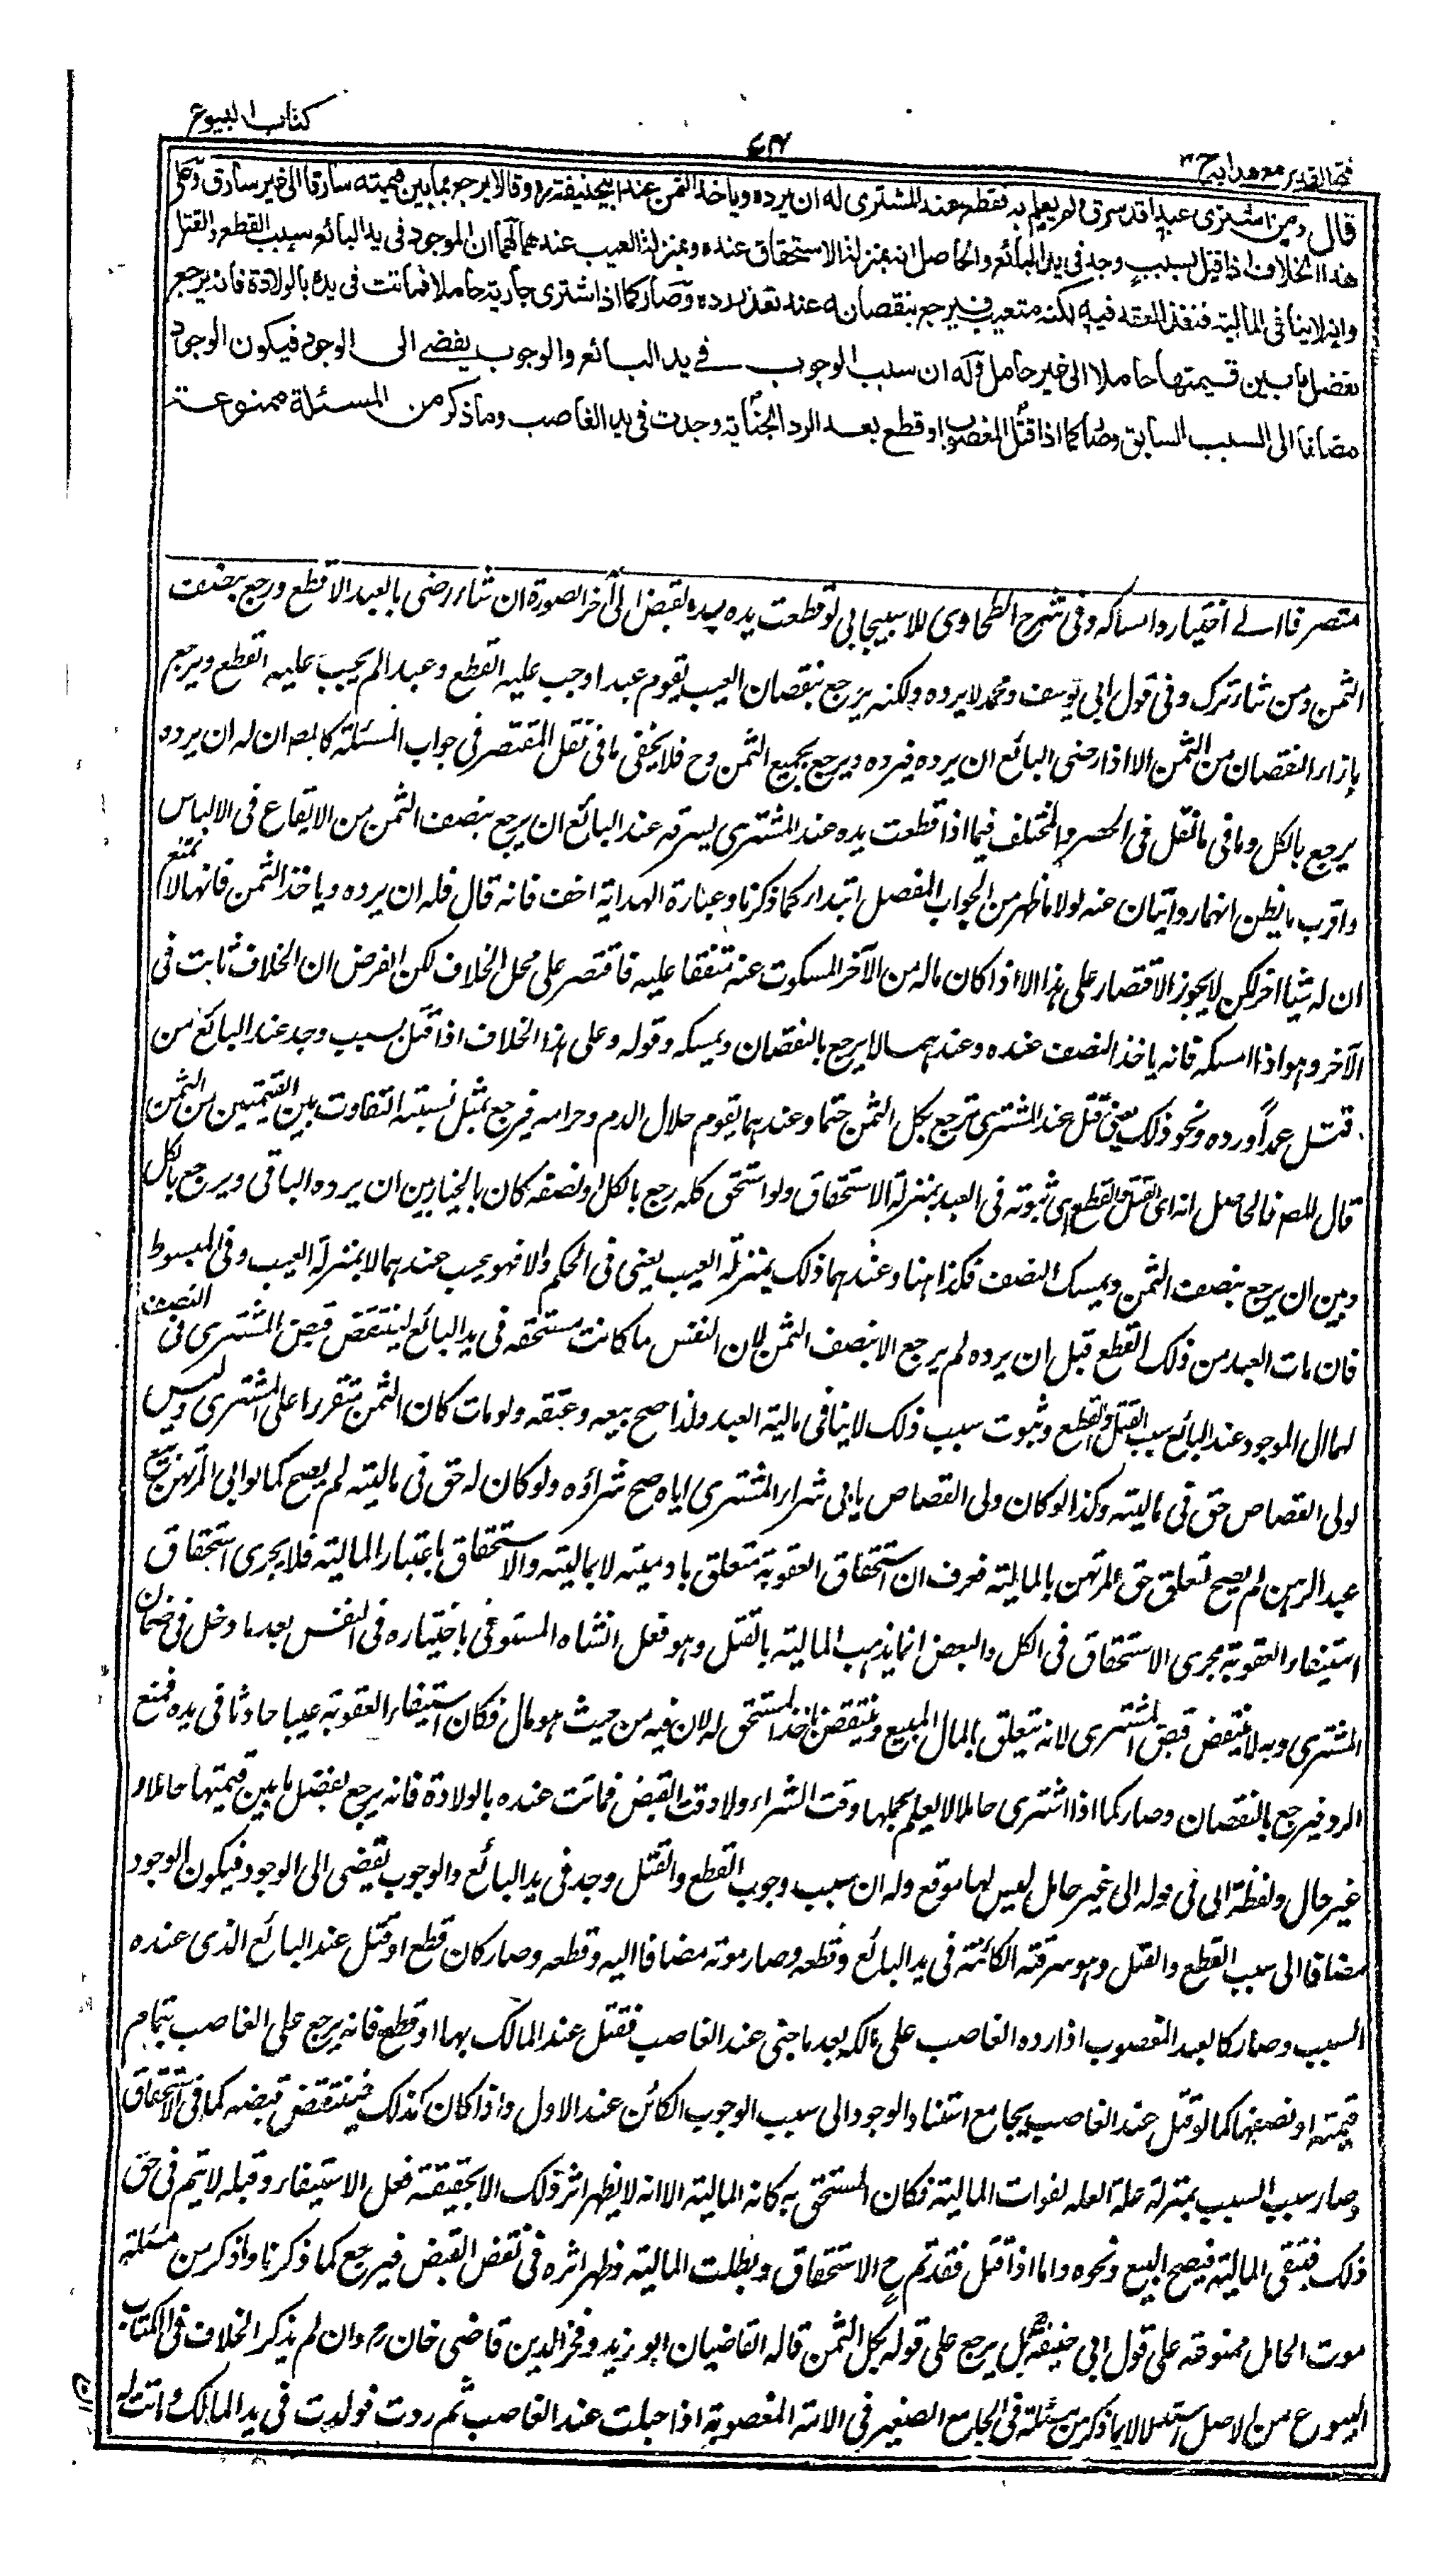 كتاب البيوع
فتح القدير مع هدايه ج ٣
قال ومن اشترى عبدا قد سرق ولم يعلم به فقطع عند المشترى له ان يرده وياخذ الثمن عند ابيحنيفة رح وقالا يرجع بما بين قيمته سارقا الى غير سارق وعلى
هذا الخلاف اذا قتل بسبب وجد فى يد البائع والحاصل انه بمنزلة الاستحقاق عنده وبمنزلة العيب عندهما لهما ان الموجود فى يد البائع سبب القطع والقتل
وانه لا ينافى المالية فنفذ العقد فيه لكنه متعيب فيرجع بنقصانه عند تعذر رده وصار كما اذا اشترى جارية حاملا فماتت فى يده بالولادة فانه يرجع
بفضل ما بين قيمتها حاملا الى غير حامل وله ان سبب الوجوب فى يد البائع والوجوب يفضى الى الوجود فيكون الوجود
مضافا الى السبب السابق وصار كما اذا قتل المغصوب او قطع بعد الرد لجناية وجدت فى يد الغاصب وما ذكر من المسئلة ممنوعة
مقتصر فا الے اختياره وامساكه وفى شرح الطحاوى للاسبيجابى لو قطعت يده بيده لقبض الى آخر الصورة ان شاء رضى بالعبد الاقطع ورجع بنصف
الثمن ومن شاء ترك وفى قول ابى يوسف ومحمد لا يرده ولكنه يرجع بنقصان العيب يقوم عبدا وجب عليه القطع وعبدا لم يجب عليه القطع ويرجع
بازاء النقصان من الثمن الا اذا رضى البائع ان يرده فيرده ويرجع بجميع الثمن وح فلا يخفى ما فى نقل المقتصر فى جواب المسئلة كالمصر ان له ان يرده و
يرجع بالكل وما فى ما نقل فى الحصر والمختلف فيما اذا قطعت يده عند المشترى بسرقة عند البائع ان يرجع بنصف الثمن من الايقاع فى الالباس
واقرب ما يظن انهما روايتان عنه لولا ما ظهر من الجواب المفصل ابتداء كما ذكرنا وعبارة الهداية اخف فانه قال فله ان يرده وياخذ الثمن فانها لا تمنع
ان له شيئا اخر لكن لا يجوز الاقتصار على هذا الا اذا كان ماله من الآخر المسكوت عنه متفقا عليه فاقتصر على محل الخلاف لكن الفرض ان الخلاف ثابت فى
الآخر وهو اذا امسكه فانه ياخذ النصف عنده وعندهما لا يرجع بالنقصان ويمسكه وقوله وعلى هذا الخلاف اذا قتل بسبب وجد عند البائع من
قتل عمدا وردة ونحو ذلك يعنى قتل عند المشترى يرجع بكل الثمن حتما وعندهما يقوم حلال الدم وحرامه فيرجع بمثل نسبة التفاوت بين القيمتين من الثمن
قال المصر فالحاصل انه اى القتل والقطع اى ثبوته فى العبد بمنزلة الاستحقاق ولو استحق كله رجع بالكل او نصفه كان بالخيار بين ان يرده الباقى ويرجع بالكل
وبين ان يرجع بنصف الثمن ويمسك النصف فكذا هنا وعندهما ذلك بمنزلة العيب يعنى فى الحكم والا فهو عيب عندهما لا بمنزلة العيب وفى المبسوط
فان مات العبد من ذلك القطع قبل ان يرده لم يرجع الا بنصف الثمن لان النفس ما كانت مستحقة فى يد البائع لينتقض قبض المشترى فى النصف
لهما ان الموجود عند البائع سبب القتل والقطع وثبوت سبب ذلك لا ينافى مالية العبد ولذا صح بيعه وعتقه ولو مات كان الثمن متقررا على المشترى وليس
لولى القصاص حق فى ماليته وكذا لو كان ولى القصاص يابى شراء المشترى اياه صح شراؤه ولو كان له حق فى ماليته لم يصح كما لو ابى المرتهن بيع
عبد الرهن لم يصح لتعلق حق المرتهن بالمالية فعرف ان استحقاق العقوبة متعلق بادميته لا بماليته والاستحقاق باعتبار المالية فلا يجرى استحقاق
استيفاء العقوبة مجرى الاستحقاق فى الكل والبعض انما يذهب المالية بالقتل وهو فعل انشاه المستوفى باختياره فى النفس بعد ما دخل فى ضمان
المشترى وبه لا ينتقض قبض المشترى لانه يتعلق بالمال المبيع وينتقض باخذ المستحق له لان فيه من حيث هو مال فكان استيفاء العقوبة عيبا حادثا فى يده فمنع
الرد فيرجع بالنقصان وصار كما اذا اشترى حاملا لا يعلم بحملها وقت الشراء ولا وقت القبض فماتت عنده بالولادة فانه يرجع بفضل ما بين قيمتها حاملا و
غير حال ولفظة الى فى قوله الى غير حامل ليس لها موقع وله ان سبب وجوب القطع والقتل وجد فى يد البائع والوجوب يفضى الى الوجود فيكون الوجود
مضافا الى سبب القطع والقتل وهو سرقته الكائنة فى يد البائع وقطعه وصار موته مضافا اليه وقطعه وصار كان قطع او قتل عند البائع الذى عنده
السبب وصار كالعبد المغصوب اذا رده الغاصب على مالكه بعد ما جنى عند الغاصب فقتل عند المالك بها او قطع فانه يرجع على الغاصب بتمام
قيمته او نصفها كما لو قتل عند الغاصب بجامع استناد الوجود الى سبب الوجوب الكائن عند الاول واذا كان كذلك فينتقض قبضه كما فى الاستحقاق
وصار سبب السبب بمنزلة علة العله لفوات المالية فكان المستحق به كانه المالية الا انه لا يظهر اثر ذلك الا بحقيقة فعل الاستيفاء وقبله لا يتم فى حق
ذلك فتبقى المالية فيصح البيع ونحوه واما اذا قتل فقد تم ح الاستحقاق وبطلت المالية وظهر اثره فى نقض القبض فيرجع كما ذكرنا وما ذكر من مسئلة
موت الحامل ممنوعة على قول ابى حنيفة بل يرجع على قوله بكل الثمن قاله القاضيان ابو زيد وفخر الدين قاضى خان رح وان لم يذكر الخلاف فى الكتاب
البيوع من الاصل استدلالا بما ذكر من مسئلة فى الجامع الصغير فى الامة المغصوبة اذا حبلت عند الغاصب ثم ردت فولدت فى يد المالك وماتت به